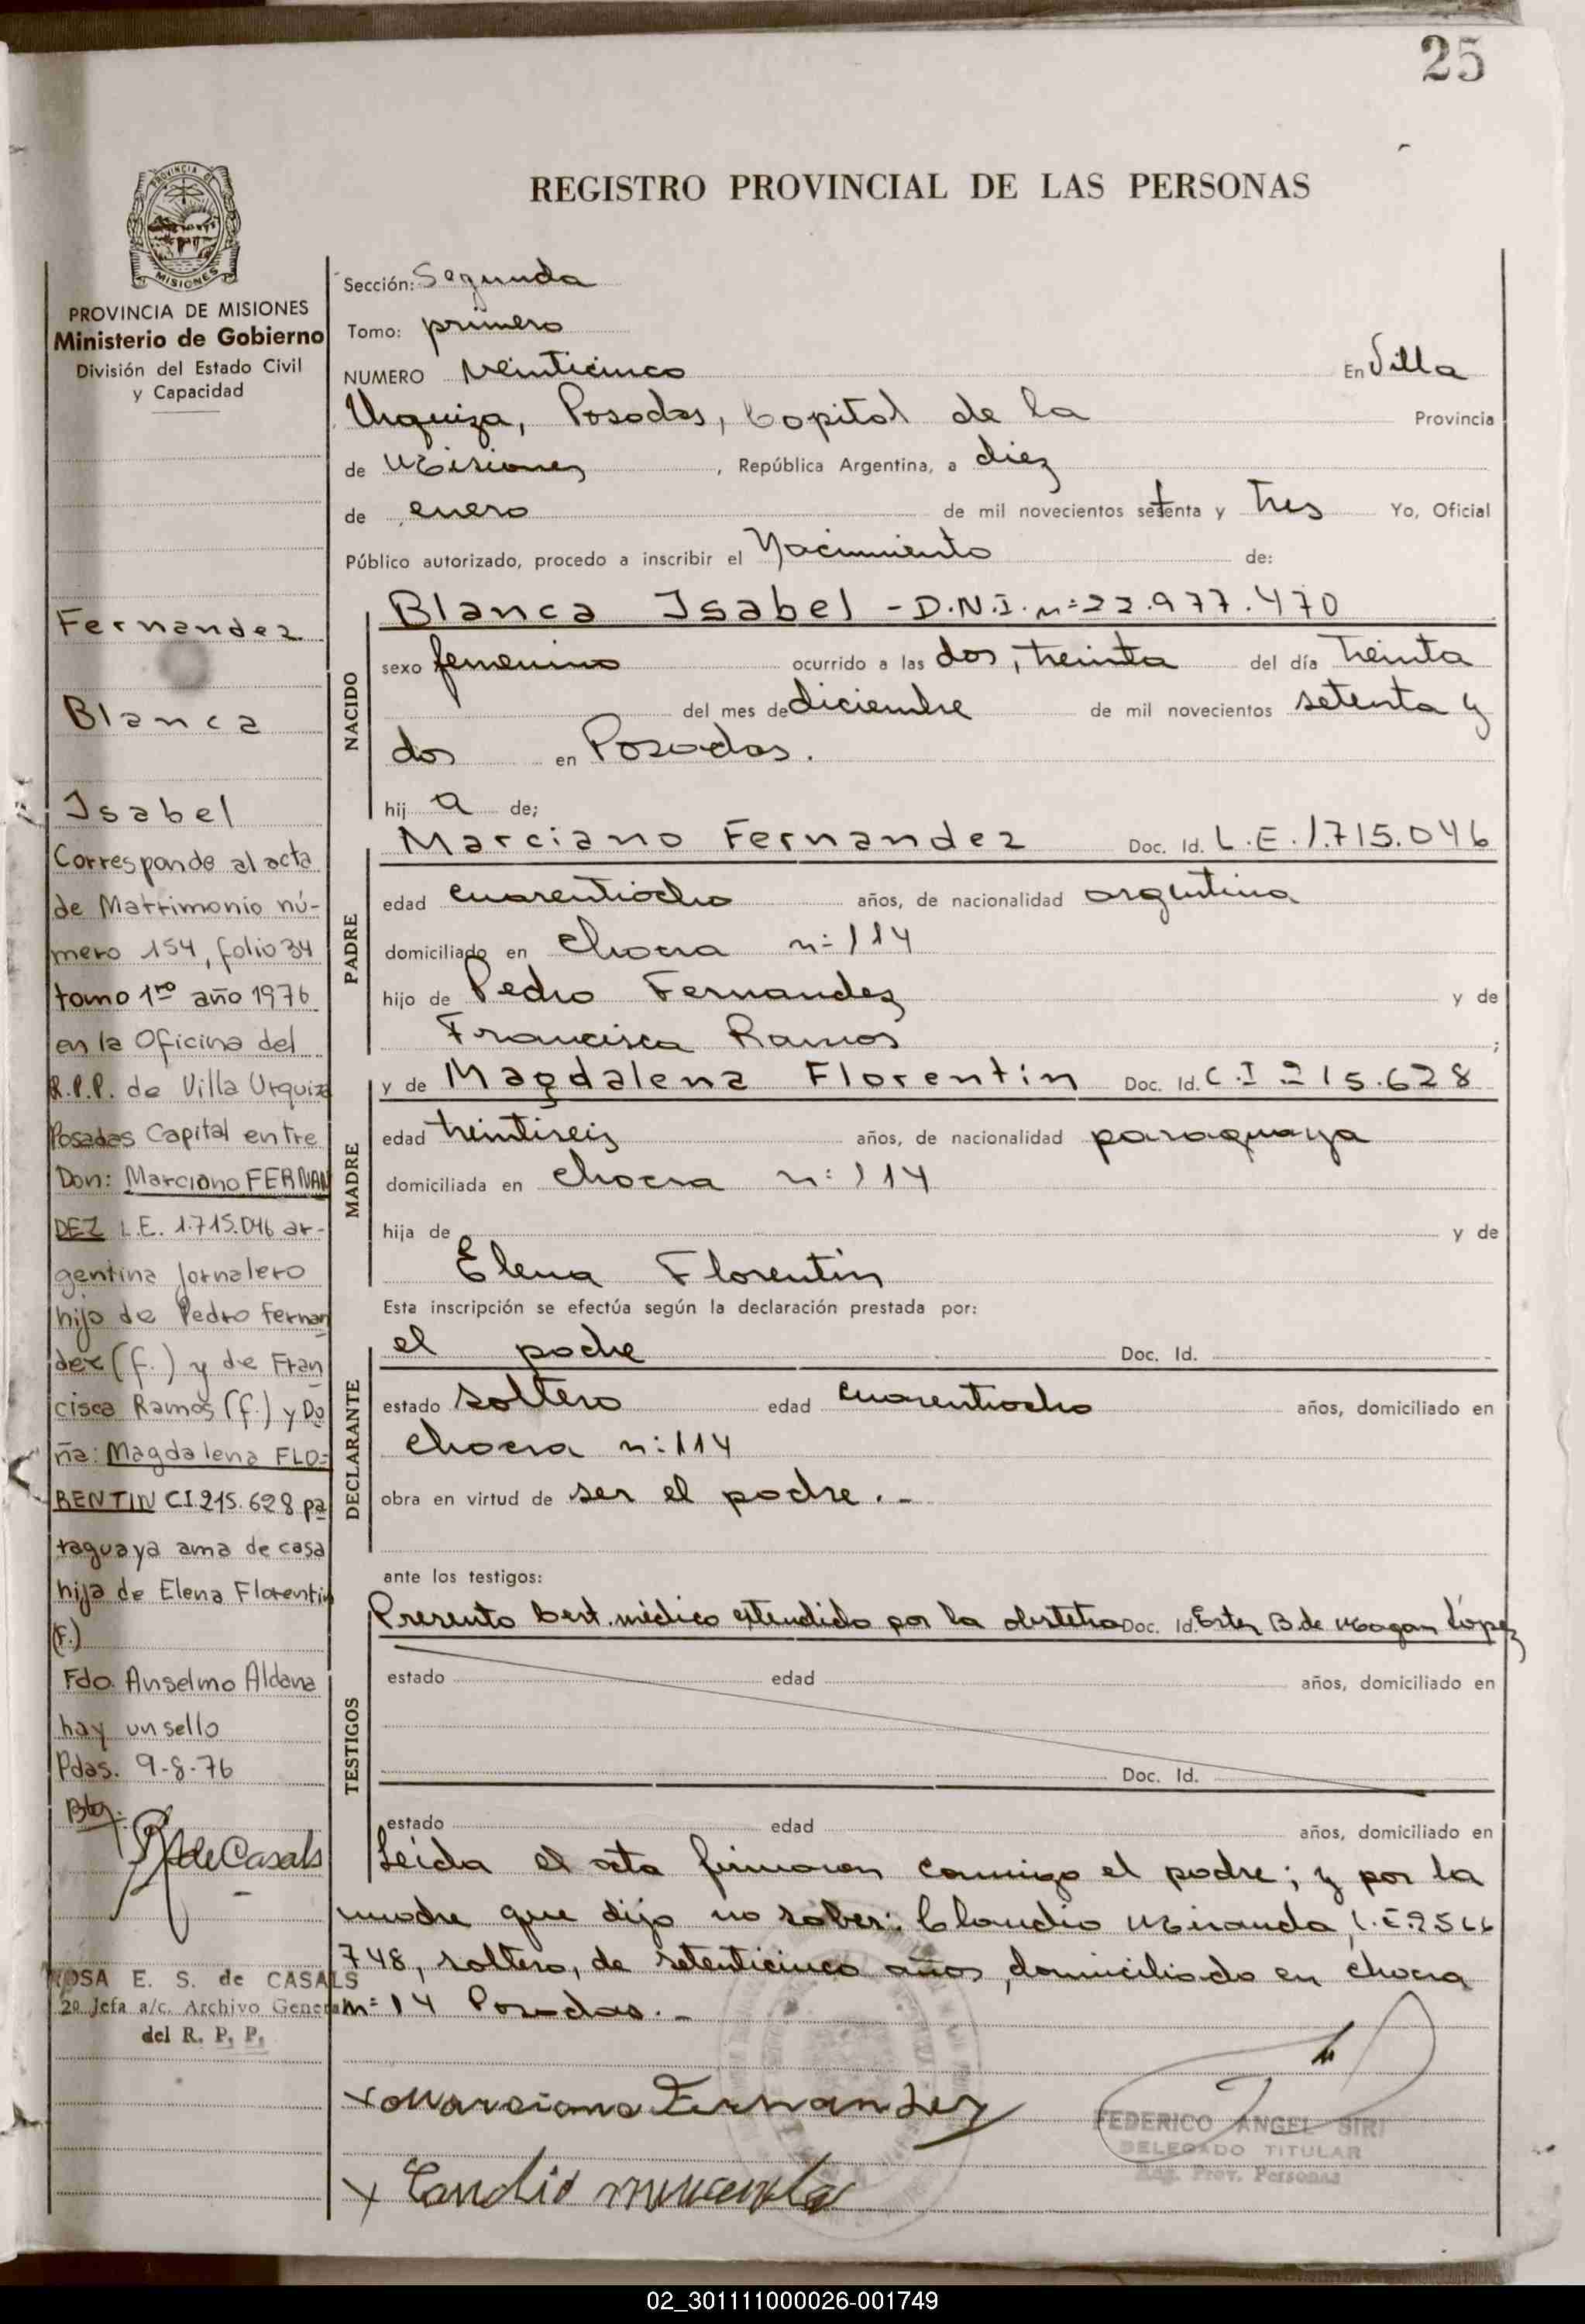 25
REGISTRO PROVINCIAL DE LAS PERSONAS
PROVINCIA DE
MISIONES
PROVINCIA DE MISIONES
Ministerio de Gobierno
División del Estado Civil
y Capacidad
Fernandez
Blanca
Isabel
Corresponde al acta
de Matrimonio nú-
mero 154, folio 34
tomo 1ro año 1976
en la Oficina del
R.P.P. de Villa Urquiza
Posadas Capital entre
Don: Marciano FERNAN
DEZ L.E. 1.715.046 ar-
gentina jornalero
hijo de Pedro Fernan
dez (f.) y de Fran
cisca Ramos (f.) y Do
ña: Magdalena FLO=
RENTIN C.I. 215.628 pa
raguaya ama de casa
hija de Elena Florentin
(F.)
Fdo. Anselmo Aldana
hay un sello
Pdas. 9-8-76
de Casals
ROSA E. S. de CASALS
2º Jefa a/c. Archivo General
del R. P. P.
Sección: Segunda
Tomo: primero
NUMERO Veinticinco En Villa
Urquiza, Posadas, Capital de la Provincia
de Misiones, República Argentina, a diez
de enero de mil novecientos setenta y tres Yo, Oficial
Público autorizado, procedo a inscribir el Nacimiento de:
NACIDO
Blanca Isabel - D.N.I. nº 22.977.470
sexo femenino ocurrido a las dos, treinta del día treinta
del mes de diciembre de mil novecientos setenta y
dos en Posadas.
hij a de;
PADRE
Marciano Fernandez Doc. Id. L.E. 1.715.046
edad cuarentiocho años, de nacionalidad argentina
domiciliado en chacra nº 114
hijo de Pedro Fernandez y de
Francisca Ramos ;
MADRE
y de Magdalena Florentin Doc. Id. C.I. 215.628
edad treintiseis años, de nacionalidad paraguaya
domiciliada en chacra nº 114
hija de y de
Elena Florentin
Esta inscripción se efectúa según la declaración prestada por:
DECLARANTE
el padre Doc. Id.
estado soltero edad cuarentiocho años, domiciliado en
chacra nº 114
obra en virtud de ser el padre. -
ante los testigos:
TESTIGOS
Presento Cert. médico extendido por la obstetra Doc. Id. Ester B. de Magan López
estado edad años, domiciliado en
Doc. Id.
estado edad años, domiciliado en
Leida el acta firmaron conmigo el padre; y por la
madre que dijo no saber: Claudio Miranda, L.E. 2566
748, soltero, de setenticinco años, domiciliado en chacra
nº 14 Posadas. -
x Marciano Fernandez
x
FEDERICO ANGEL SIRI
DELEGADO TITULAR
Reg. Prov. Personas
02_301111000026-001749